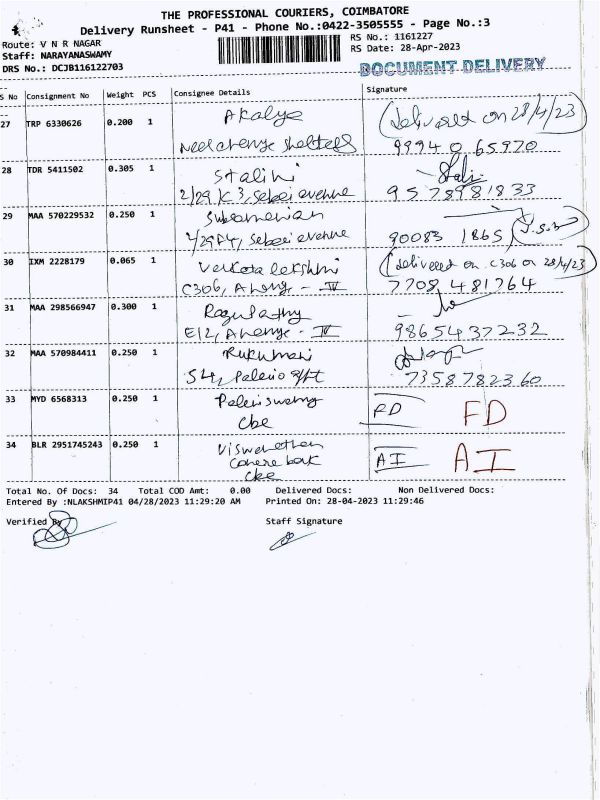 THE PROFESSIONAL COURIERS, COIMBATORE
Delivery Runsheet - P41 - Phone No.:0422-3505555 - Page No.:3
Route: V N R NAGAR
RS No.: 1161227
Staff: NARAYANASWAMY
RS Date: 28-Apr-2023
DRS No.: DCJB116122703
DOCUMENT DELIVERY
S No Consignment No Weight PCS Consignee Details Signature
27 TRP 6330626 0.200 1 Akalya (delivered on 28/4/23)
99940 65970
28 TDR 5411502 0.305 1 Stalini
2/29 K3, Sebari avenue 9578981833
29 MAA 570229532 0.250 1 Subramanian
90083 1865
30 IXM 2228179 0.065 1 Venkata lakshmi (delivered on C306 on 28/4/23)
C306, - IV 7708 481764
31 MAA 298566947 0.300 1 Ragupathy
E12, - IV 9865437232
32 MAA 570984411 0.250 1 Rukumani
7358782360
33 MYD 6568313 0.250 1 Palaniswamy RD FD
Cbe
34 BLR 2951745243 0.250 1 Viswanathan AI AI
Cbe
Total No. Of Docs: 34 Total COD Amt: 0.00 Delivered Docs: Non Delivered Docs:
Entered By :NLAKSHMIP41 04/28/2023 11:29:20 AM Printed On: 28-04-2023 11:29:46
Verified By Staff Signature